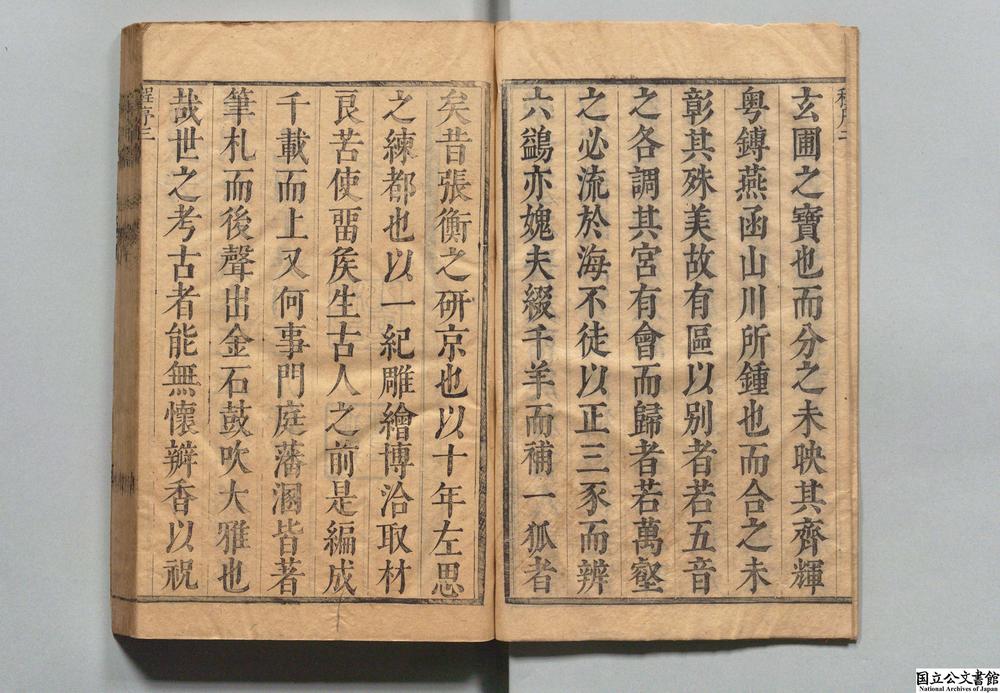 玄圃之寶也而分之未映其齊輝
粤鏄燕函山川所鍾也而合之未
彰其殊美故有區以别者若五音
之各調其宮有會而歸者若萬壑
之必流於海不徒以正三豕而辨
六鷁亦媿夫綴千羊而補一狐者
矣昔張衡之研京也以十年左思
之練都也以一紀雕繪博洽取材
良苦使畱矦生古人之前是編成
千載而上又何事門庭藩溷皆著
筆札而後聲出金石鼓吹大雅也
哉世之考古者能無懷瓣香以祝
程序三
国立公文書館
National Archives of Japan